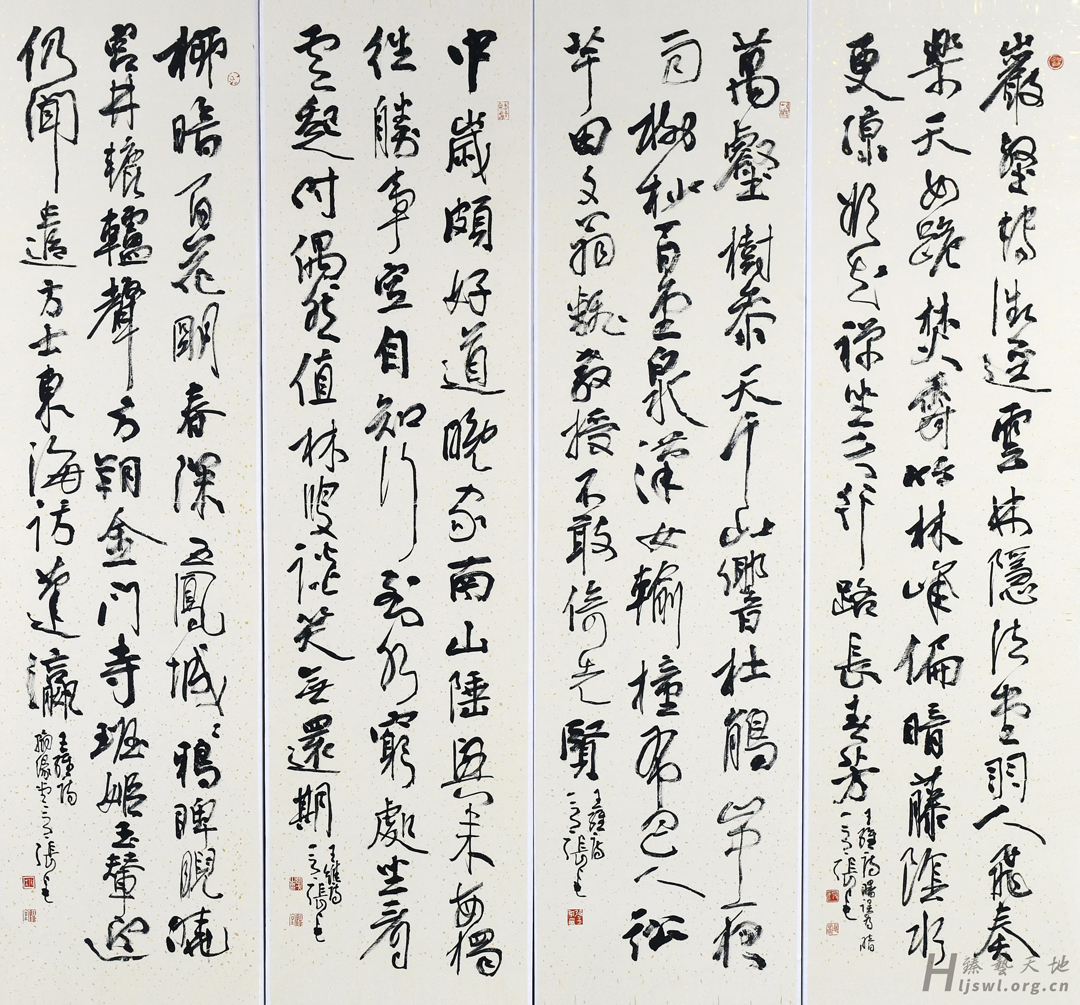 巖壑轉微逕雲林隱法堂羽人飛奏
樂天女跪焚香竹外峰偏暗藤陰水
更涼欲知禪坐久行路長春芳
王維詩曙誤為暗
萬壑樹參天千山響杜鵑山中一夜
雨樹杪百重泉漢女輸橦布巴人訟
芋田文翁翻教授不敢倚先賢
王維詩
中歲頗好道晚家南山陲興來每獨
往勝事空自知行到水窮處坐看
雲起時偶然值林叟談笑無還期
王維詩
柳暗百花明春深五鳳城〻鴉睥睨曉
宮井轆轤聲方朔金門寺班姬玉輦迎
仍聞遣方士東海訪蓬瀛
王維詩
臻藝天地
Hljswl.org.cn